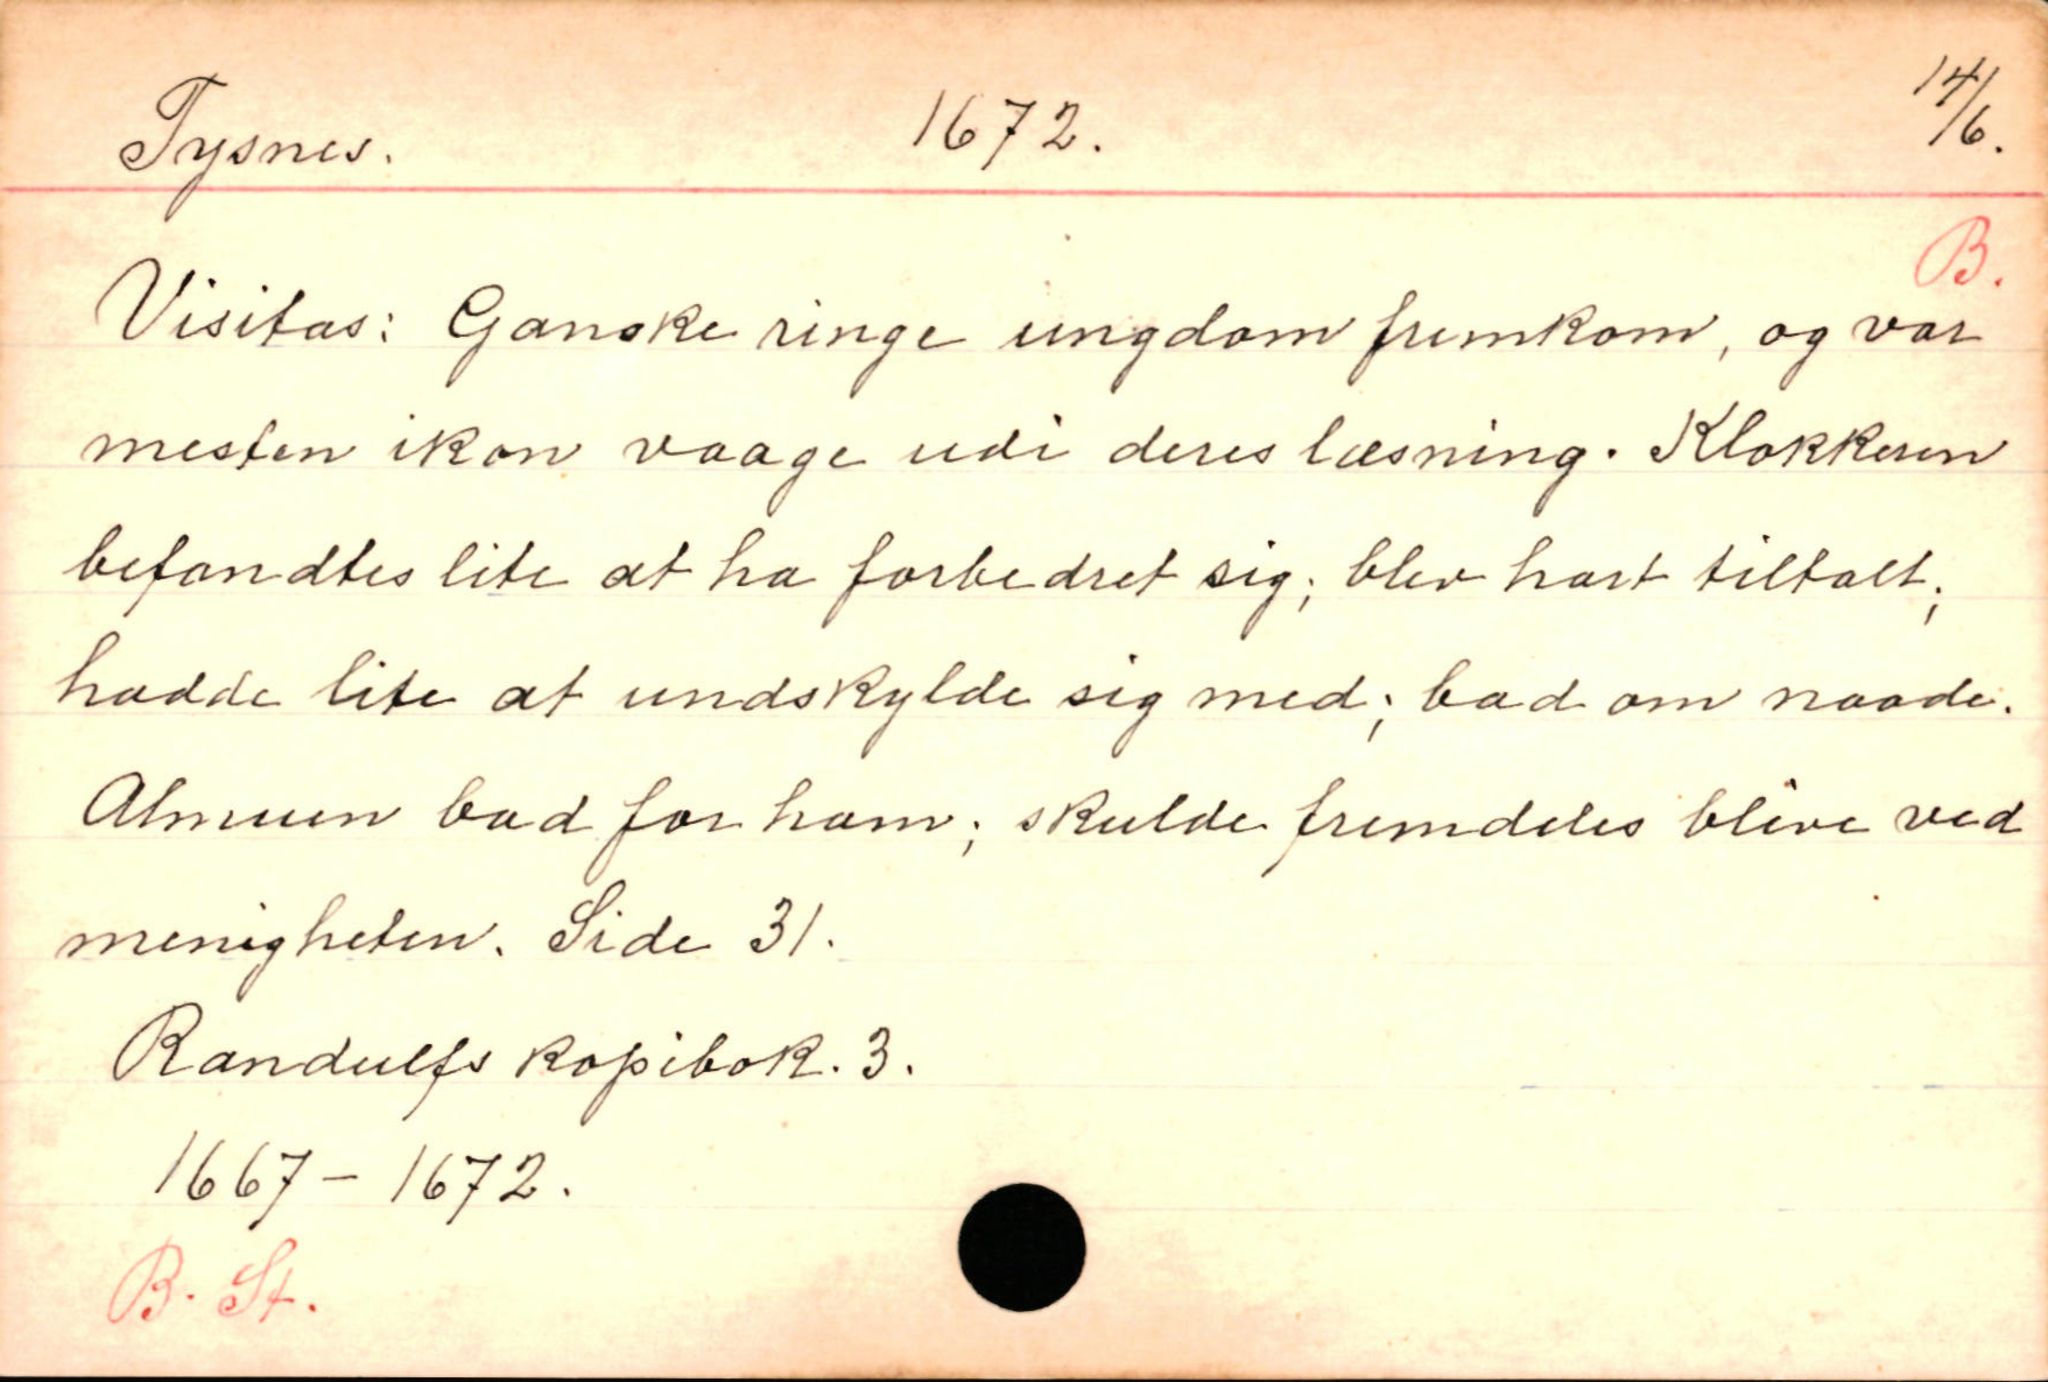 Tysnes. 1672. 14/6.
B.
Visitas: Ganske ringe ungdom fremkom, og var
mesten ikon vaage udi deres læsning. Klokkeren
befandtes lite at ha forbedret sig; blev hart tiltalt;
hadde lite at undskylde sig med; bad om naade.
Almuen bad for ham; skulde fremdeles blive ved
menigheten. Side 31.
Randulfs kopibok. 3.
1667 - 1672.
B. St.